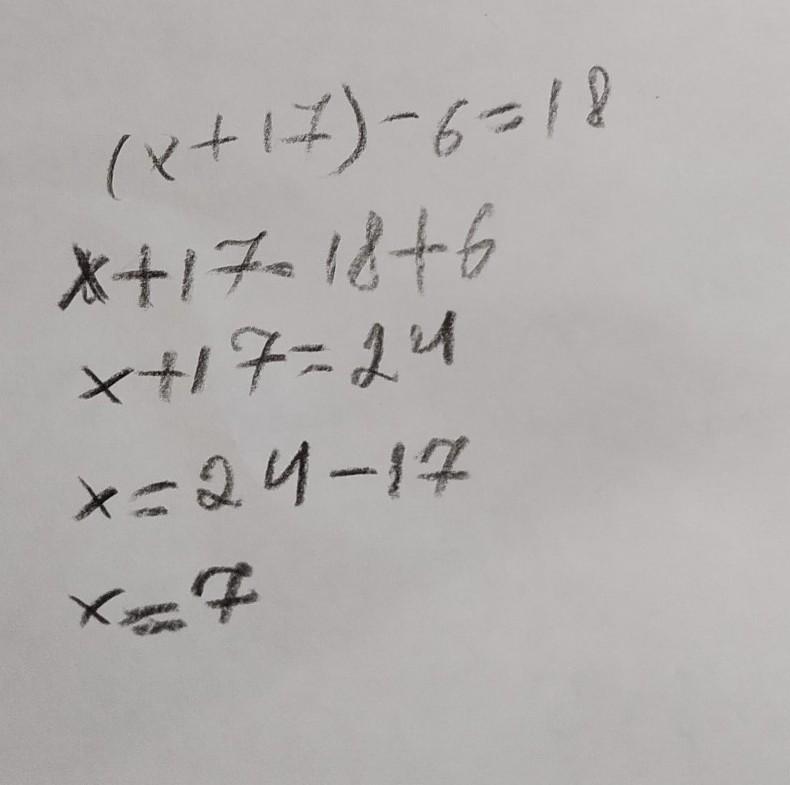 (x+17)-6=18
x+17=18+6
x+17=24
x=24-17
x=7